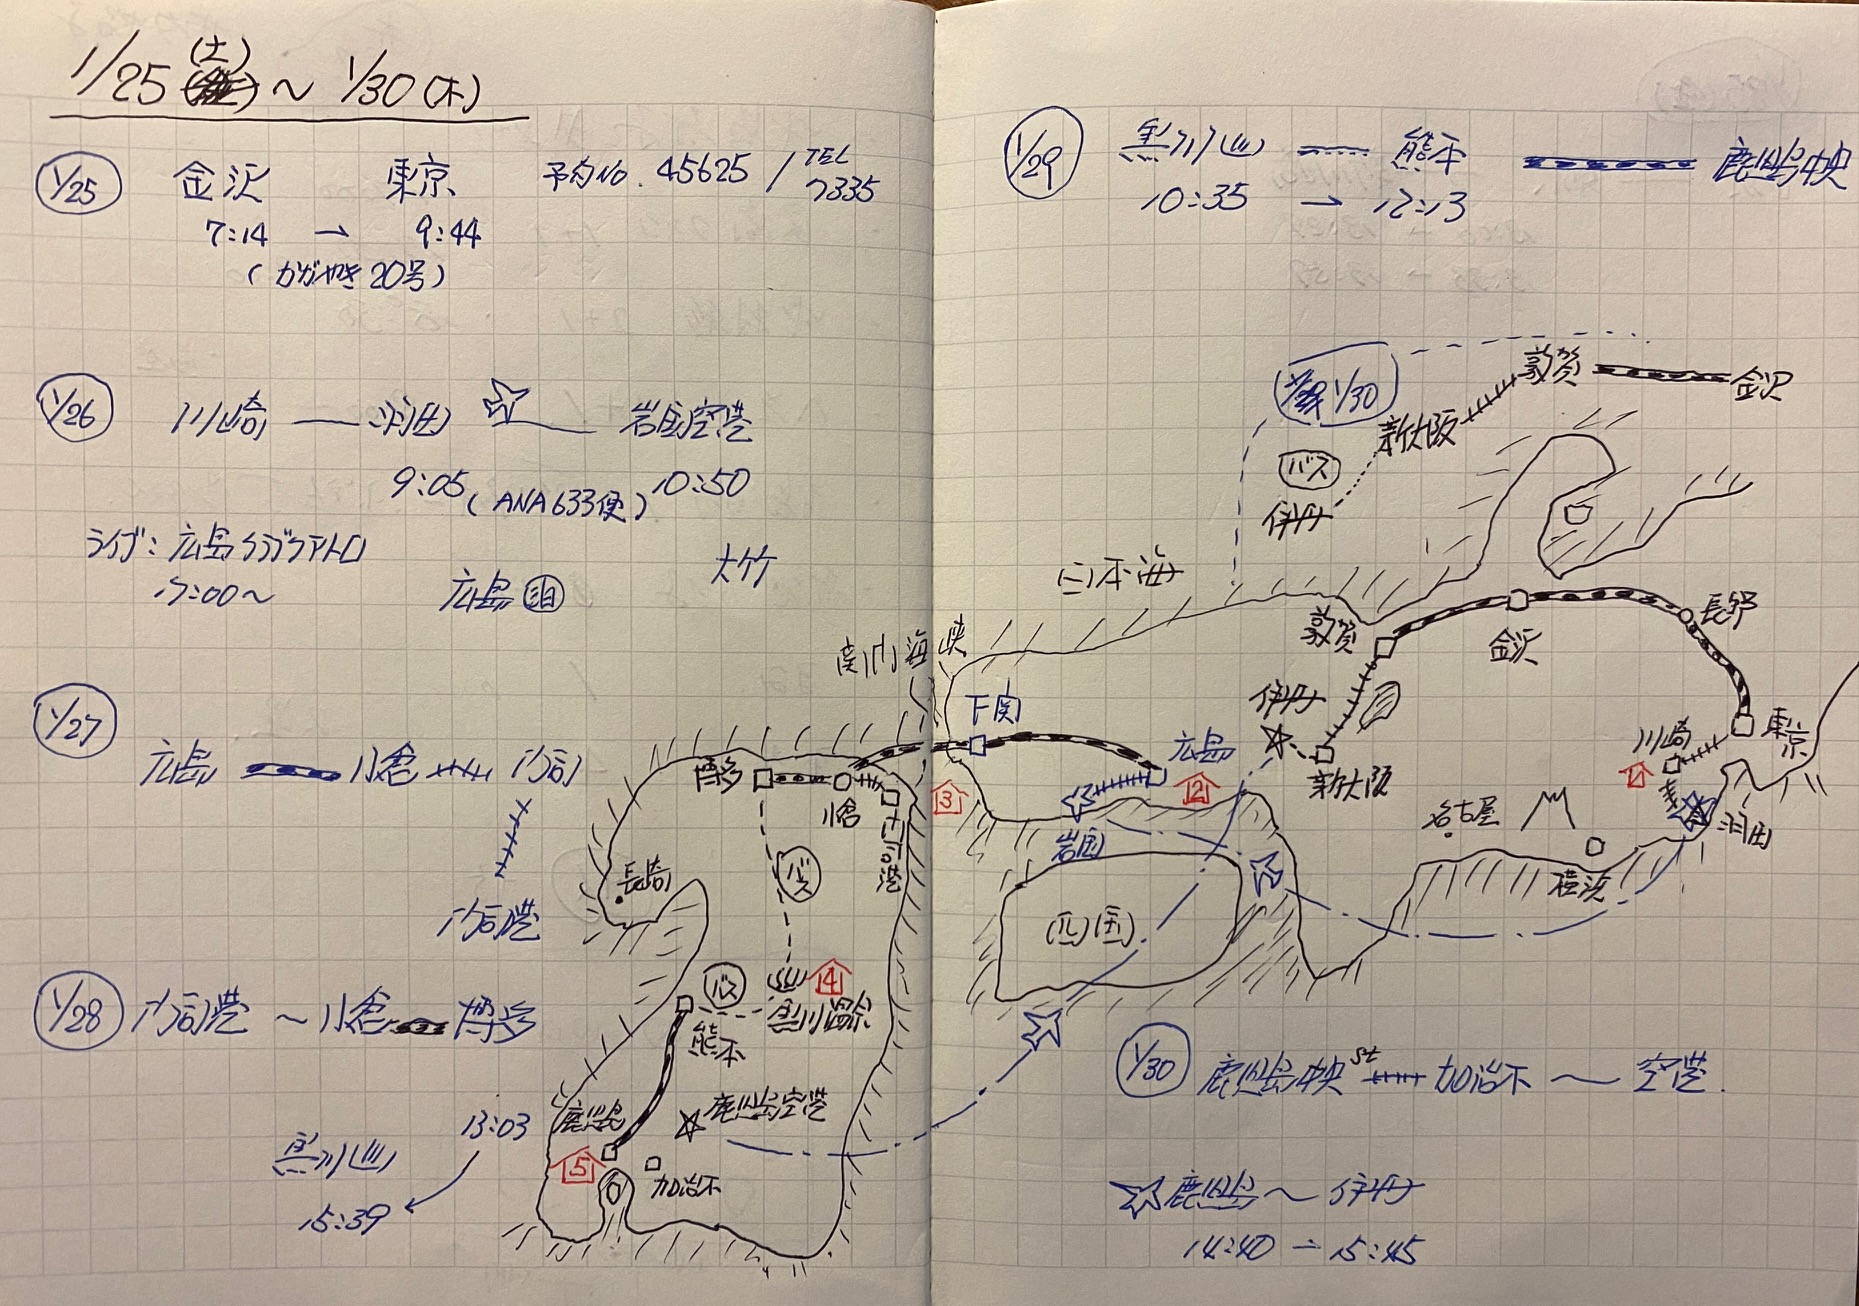 1/25(土)～1/30(木)
1/25 金沢 東京 予約No. 45625 / TEL 7335
7:14 → 9:44
(かがやき20号)
1/26 川崎 羽田 岩国空港
9:05 (ANA633便) 10:50
ライブ: 広島クラブクアトロ 大竹
17:00～ 広島 泊
1/27
広島 小倉 門司
門司港
1/28 門司港 ～ 小倉 博多
13:03
黒川
15:39
1/29 黒川 熊本 鹿児島中央
10:35 → 12:13
1/30
敦賀 金沢
新大阪
バス
伊丹
日本海
関門海峡
敦賀
金沢
長野
東京
川崎
1
羽田
横浜
名古屋
伊丹
新大阪
下関
広島
2
岩国
四国
3
博多
小倉
門司港
長崎
バス
4
黒川温泉
バス
熊本
鹿児島
鹿児島空港
5
加治木
1/30 鹿児島中央st 加治木 ～ 空港
鹿児島～伊丹
14:40 → 15:45